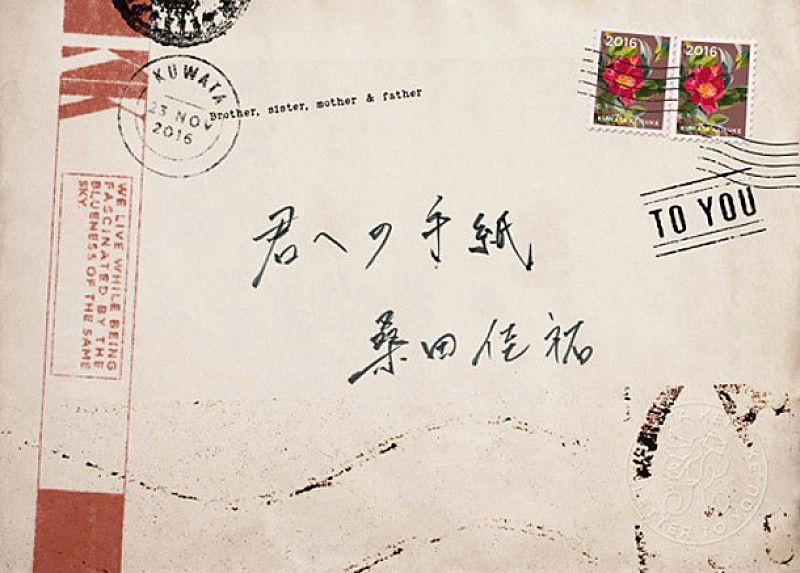 KK
KUWATA
23 NOV
2016
Brother, sister, mother & father
2016
2016
KUWATA KEISUKE
TO YOU
WE LIVE WHILE BEING
FASCINATED BY THE
BLUENESS OF THE SAME
SKY
君への手紙
桑田佳祐